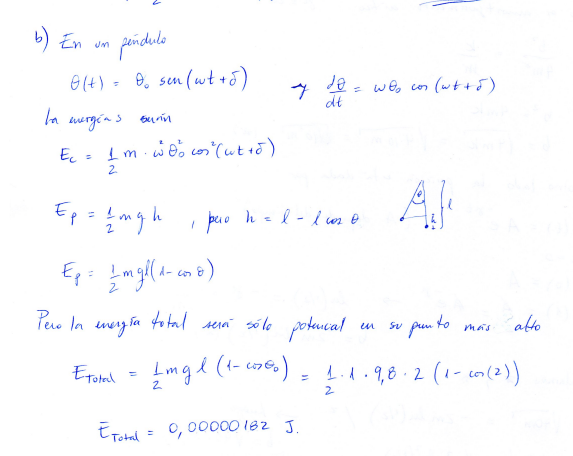 b) En un péndulo
θ(t) = θ₀ sen(ωt+δ) y dθ/dt = ωθ₀ cos(ωt+δ)
la energías serán
E_c = 1/2 m · ω² θ₀² cos²(ωt+δ)
E_p = 1/2 m g h , pero h = l - l cos θ
θ h l
E_p = 1/2 m g l (1 - cos θ)
Pero la energía total será sólo potencial en su punto más alto
E_Total = 1/2 m g l (1 - cos θ₀) = 1/2 · 1 · 9,8 · 2 (1 - cos(2))
E_Total = 0,00000182 J.